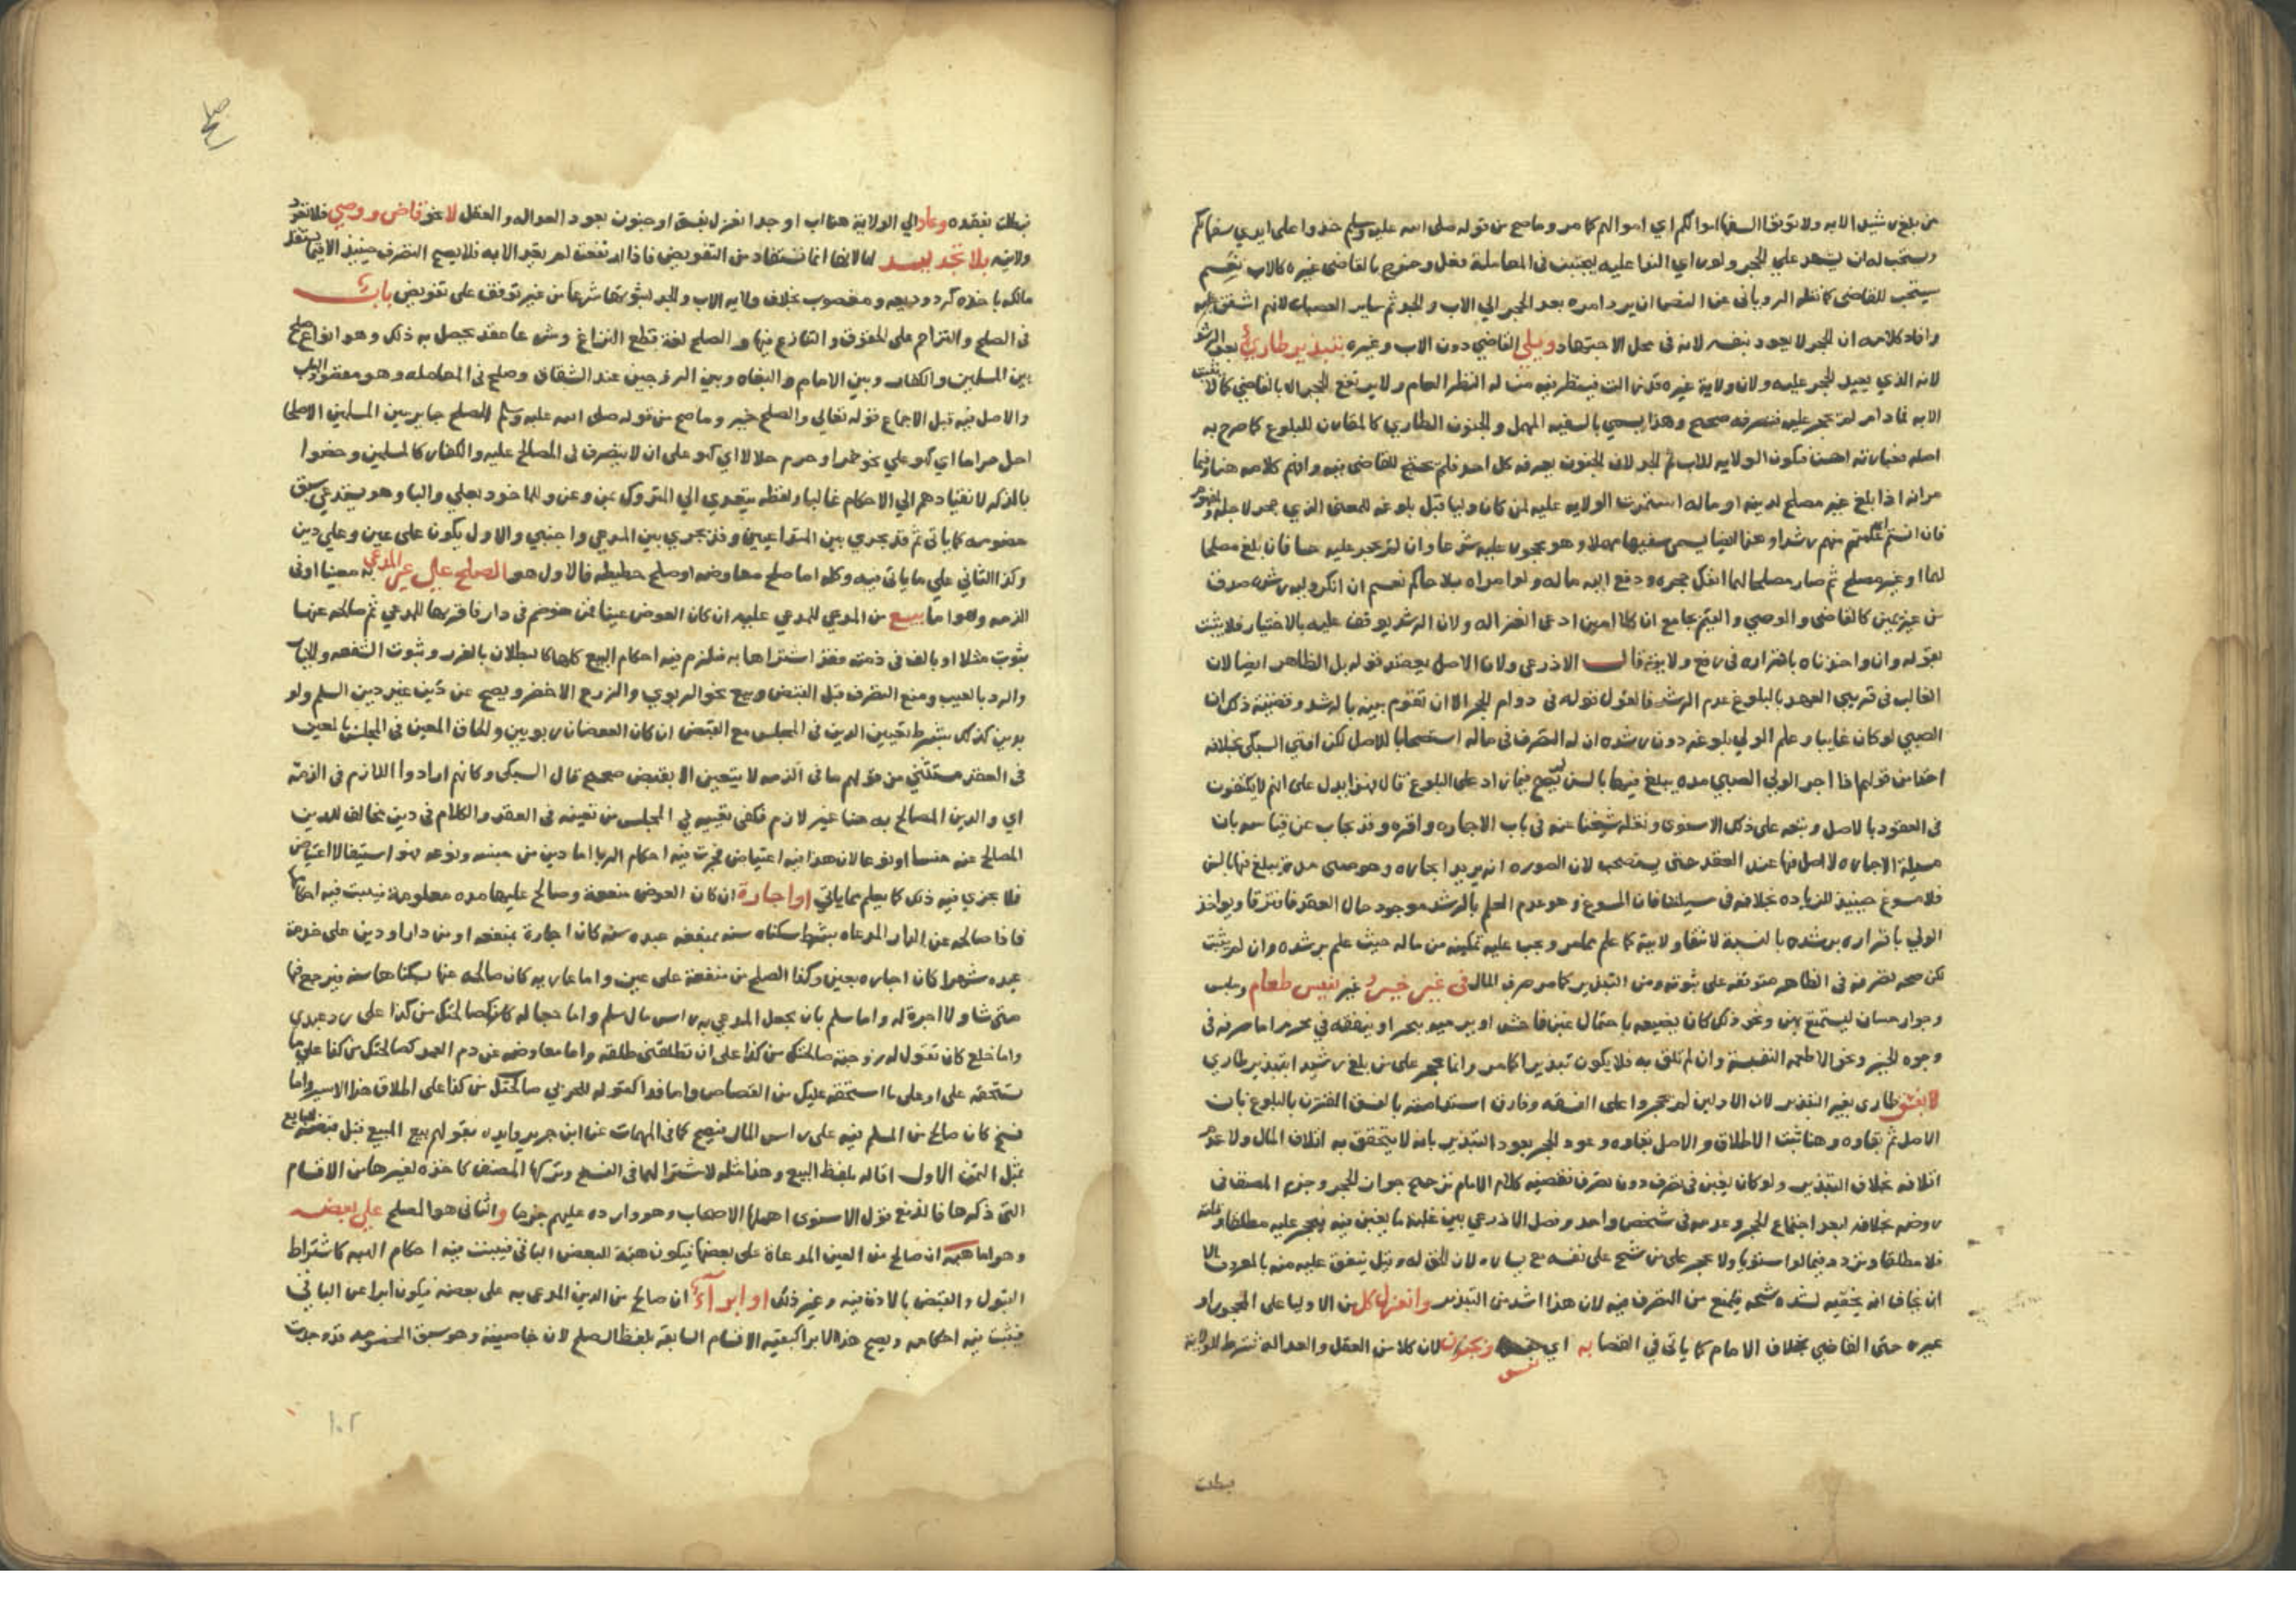 من بلغ رشيدا الايه ولا توتوا السفها اموالكم اي اموالهم كما مر وما صح من قوله صلى الله عليه وسلم خذوا على ايدي سفهايكم
ويستحب له ان يشهد على الحجر ولو راي الندا عليه ليجتنب في المعاملة فعل وخرج بالقاضي غيره كالاب نعم
يستحب للقاضي كما نقله الروياني عن النص ان يرد امره بعد الحجر الي الاب والجد ثم ساير العصبات لانهم اشفق
وافاد كلامه ان الحجر لا يعود بنفسه لانه في محل الاجتهاد ويلي القاضي دون الاب وغيره بتبذير طاري بعد الرشد
لانه الذي يعيد الحجر عليه ولان ولاية غيره قد زالت فينظر فيه من له النظر العام ولا يرتفع الحجر الا بالقاضي
الايه فما دام لم يحجر عليه فتصرفه صحيح وهذا يسمي بالسفيه المهمل والجنون الطاري كالمقارن للبلوغ كما صرح به
اصله فتكون الولايه للاب ثم الجد لان الجنون يعرفه كل احد فلم يحتج للقاضي فيه وافهم كلامه هنا وفيما
مر انه اذا بلغ غير مصلح لدينه او ماله استمرت الولايه عليه لمن كان وليا قبل بلوغه للمعنى الذي حجر لاجله
فان انستم اي علمتم منهم رشدا وهذا ايضا يسمى سفيها مهملا وهو محجور عليه شرعا وان لم يحجر عليه حسا فان بلغ مصلحا
لهما او غير مصلح ثم صار مصلحا لهما انفك حجره ودفع اليه ماله ولو امراة بلا حاكم نعم ان انكر وليه رشده صدق
من غير يمين كالقاضي والوصي والقيم بجامع ان كلا امين ادعى انعزاله ولان الرشد يوقف عليه بالاختيار فلا يثبت
بقوله وان واخذناه باقراره في رفع ولايته قال الاذرعي ولان الاصل يعضد قوله بل الظاهر ايضا لان
الغالب في قريبي العهد بالبلوغ عدم الرشد فالقول قوله في دوام الحجر الا ان تقوم بينه بالرشد وقضية ذلك ان
الصبي لو كان غايبا وعلم الولي بلوغه دون رشده ان له التصرف في ماله استصحابا للاصل لكن افتي السبكي بخلافه
اخذا من قولهم اذا اجر الولي الصبي مده يبلغ فيها بالسن لم يصح فيما زاد على البلوغ قال فهذا يدل على انهم لا يكتفون
في العقود بالاصل ونبه على ذلك الاسنوي ونقله شيخنا عنه في باب الاجاره واقره وقد يجاب عن قياسه بان
مسيلة الاجاره لا اصل فيها عند العقد حتى يستصحب لان الصوره انه يريد ايجاره وهو صبي مدة يبلغ فيها بالسن
فلا مسوغ حينيذ للزياده بخلافه في مسيلتنا فان المسوغ وهو عدم العلم بالرشد موجود حال العقد فافترقا ويواخذ
الولي باقراره برشده بالنسبة لانتفا ولايته كما علم مما مر ويجب عليه تمكينه من ماله حيث علم برشده وان لم يثبت
لكن صحه تصرفه في الظاهر متوقفه على ثبوته ومن التبذير كما مر صرف المال في غير خير وغير نفيس طعام وملبس
وجوار حسان ليستمتع بهن ونحو ذلك كان يضيعه باحتمال غبن فاحش او يرميه ببحر او ينفقه في محرم اما صرفه في
وجوه الخير ونحو الاطعمه النفيسة وان لم تلق به فلا يكون تبذيرا كما مر وانما حجر على من بلغ رشيدا بتبذير طاري
لا بفسق طاري بغير التبذير لان الاولين لم يحجروا على الفسقه وفارق استدامته بالفسق المقترن بالبلوغ بان
الاصل ثم بقاوه وهنا ثبت الاطلاق والاصل بقاوه وعود الحجر بعود التبذير بانه لا يتحقق به اتلاف المال ولا عدم
اتلافه بخلاف التبذير ولو كان يغبن في تصرف دون تصرف فقضيه كلام الامام ترجيح جواز الحجر وجزم المصنف في
روضه بخلافه لبعد اجتماع الحجر وعدمه في شخص واحد وفصل الاذرعي بين غلبة ما يغبن فيه فيحجر عليه مطلقا
فلا مطلقا وتردد فيما لو استويا ولا يحجر على من شح على نفسه مع يساره لان الحق له وقيل ينفق عليه منه بالمعروف الا
ان يخاف انه يخفيه لشده شحه فيمنع من التصرف فيه لان هذا اشد من التبذير وانعزل كل من الاوليا على المحجور او
غيره حتى القاضي بخلاف الامام كما ياتي في القضا به اي بفسق وجنون لان كلا من العقل والعداله شرط للولاية
بطلت
بطلت بفقده وعاد الي الولاية هنا اب او جد انعزل بفسق او جنون بعود العداله والعقل لا نحو قاض ووصي فلا تعود
ولايته بلا تجديد لها لانها انما تستفاد من التفويض فاذا ارتفعت لم تعد الا به فلا يصح التصرف حينيذ الا فيما يستقل
مالكه باخذه كرد وديعه ومغصوب بخلاف ولايه الاب والجد لثبوتها شرعا من غير توقف على تفويض باب
في الصلح والتزاحم على الحقوق والتنازع فيها والصلح لغة قطع النزاع وشرعا عقد يحصل به ذلك وهو انواع صلح
بين المسلمين والكفار وبين الامام والبغاه وبين الزوجين عند الشقاق وصلح في المعامله وهو مقصود الباب
والاصل فيه قبل الاجماع قوله تعالي والصلح خير وما صح من قوله صلى الله عليه وسلم الصلح جايز بين المسلمين الا صلحا
احل حراما اي كهو علي نحو خمر او حرم حلالا اي كهو على ان لا يتصرف في المصالح عليه والكفار كالمسلمين وخصوا
بالذكر لانقيادهم الي الاحكام غالبا ولفظه يتعدي الي المتروك بمن وعن والماخوذ بعلي والبا وهو يستدعي سبق
خصومه كما ياتي ثم قد يجري بين المتداعيين وقد يجري بين المدعي واجنبي والاول يكون على عين وعلي دين
وكذا الثاني علي ما ياتي فيه وكله اما صلح معاوضه او صلح حطيطه فالاول هو الصلح علي غير المدعي به معينا او في
الذمه وهو اما بيع من المدعي للمدعي عليه ان كان العوض عينا فمن خوصم في دار فاقر بها للمدعي ثم صالحه عنها
بثوب مثلا او بالف في ذمته فقد اشتراها به فيلزم فيه احكام البيع كلها كالبطلان بالغرر وثبوت الشفعه والخيار
والرد بالعيب ومنع التصرف قبل القبض وبيع نحو الربوي والزرع الاخضر ويصح عن دين غير دين السلم ولو
بدين كذلك بشرط تعيين الدين في المجلس مع القبض ان كان العوضان ربويين والحاق المعين في المجلس بالمعين
في العقد مستثني من قولهم ما في الذمه لا يتعين الا بقبض صحيح قال السبكي وكانهم ارادوا اللازم في الذمة
اي والدين المصالح به هنا غير لازم فكفى تعيينه في المجلس من تعينه في العقد والكلام في دين مخالف للدين
المصالح عنه جنسا او نوعا لان هذا فيه اعتياض فجرت فيه احكام الربا اما دين من جنسه ونوعه فهو استيفا لا اعتياض
فلا يجري فيه ذلك كما يعلم مما ياتي او اجارة ان كان العوض منفعة وصالح عليها مده معلومة فيثبت فيه احكامها
فاذا صالحه عن الدار المدعاه بشرط سكناه سنه بمنفعه عبده سنه كان اجارة بمنفعه او من دار او دين على خدمة
عبده شهرا كان اجاره بعين وكذا الصلح من منفعة على عين واما عاريه كان صالحه عنها بسكناها سنه فيرجع فيها
متى شا ولا اجرة له واما سلم بان يجعل المدعي به راس مال سلم واما جعاله كصالحتك من كذا على رد عبدي
واما خلع كان تقول له زوجته صالحتك من كذا على ان تطلقني طلقه واما معاوضه عن دم العمد كصالحتك من كذا علي ما
تستحقه على او على ما استحقه عليك من القصاص واما فدا كقوله للحربي صالحتك من كذا على اطلاق هذا الاسير واما
فسخ كان صالح من المسلم فيه على راس المال فيصح كما في المهمات عن ابن جرير وايده بقولهم بيع المبيع قبل قبضه للبايع
بمثل الثمن الاول اقاله بلفظ البيع وهذا مثله لاشتراكهما في الفسخ وتركها المصنف كاخذه لغيرها من الاقسام
التي ذكرها فاندفع قول الاسنوي اهملها الاصحاب وهو وارد عليهم جزما والثاني هو الصلح على بعضه
وهو اما هبة ان صالح من العين المدعاة على بعضها فيكون هبة للبعض الباقي فيثبت فيه احكام الهبه كاشتراط
القبول والقبض بالاذن فيه وغير ذلك او ابراء ان صالح من الدين المدعى به على بعضه فيكون ابرا عن الباقي
فيثبت فيه احكامه ويصح هذا الابرا كبقيه الاقسام السابقه بلفظ الصلح لان خاصيته وهو سبق الخصومه قد وجدت
١٠٢